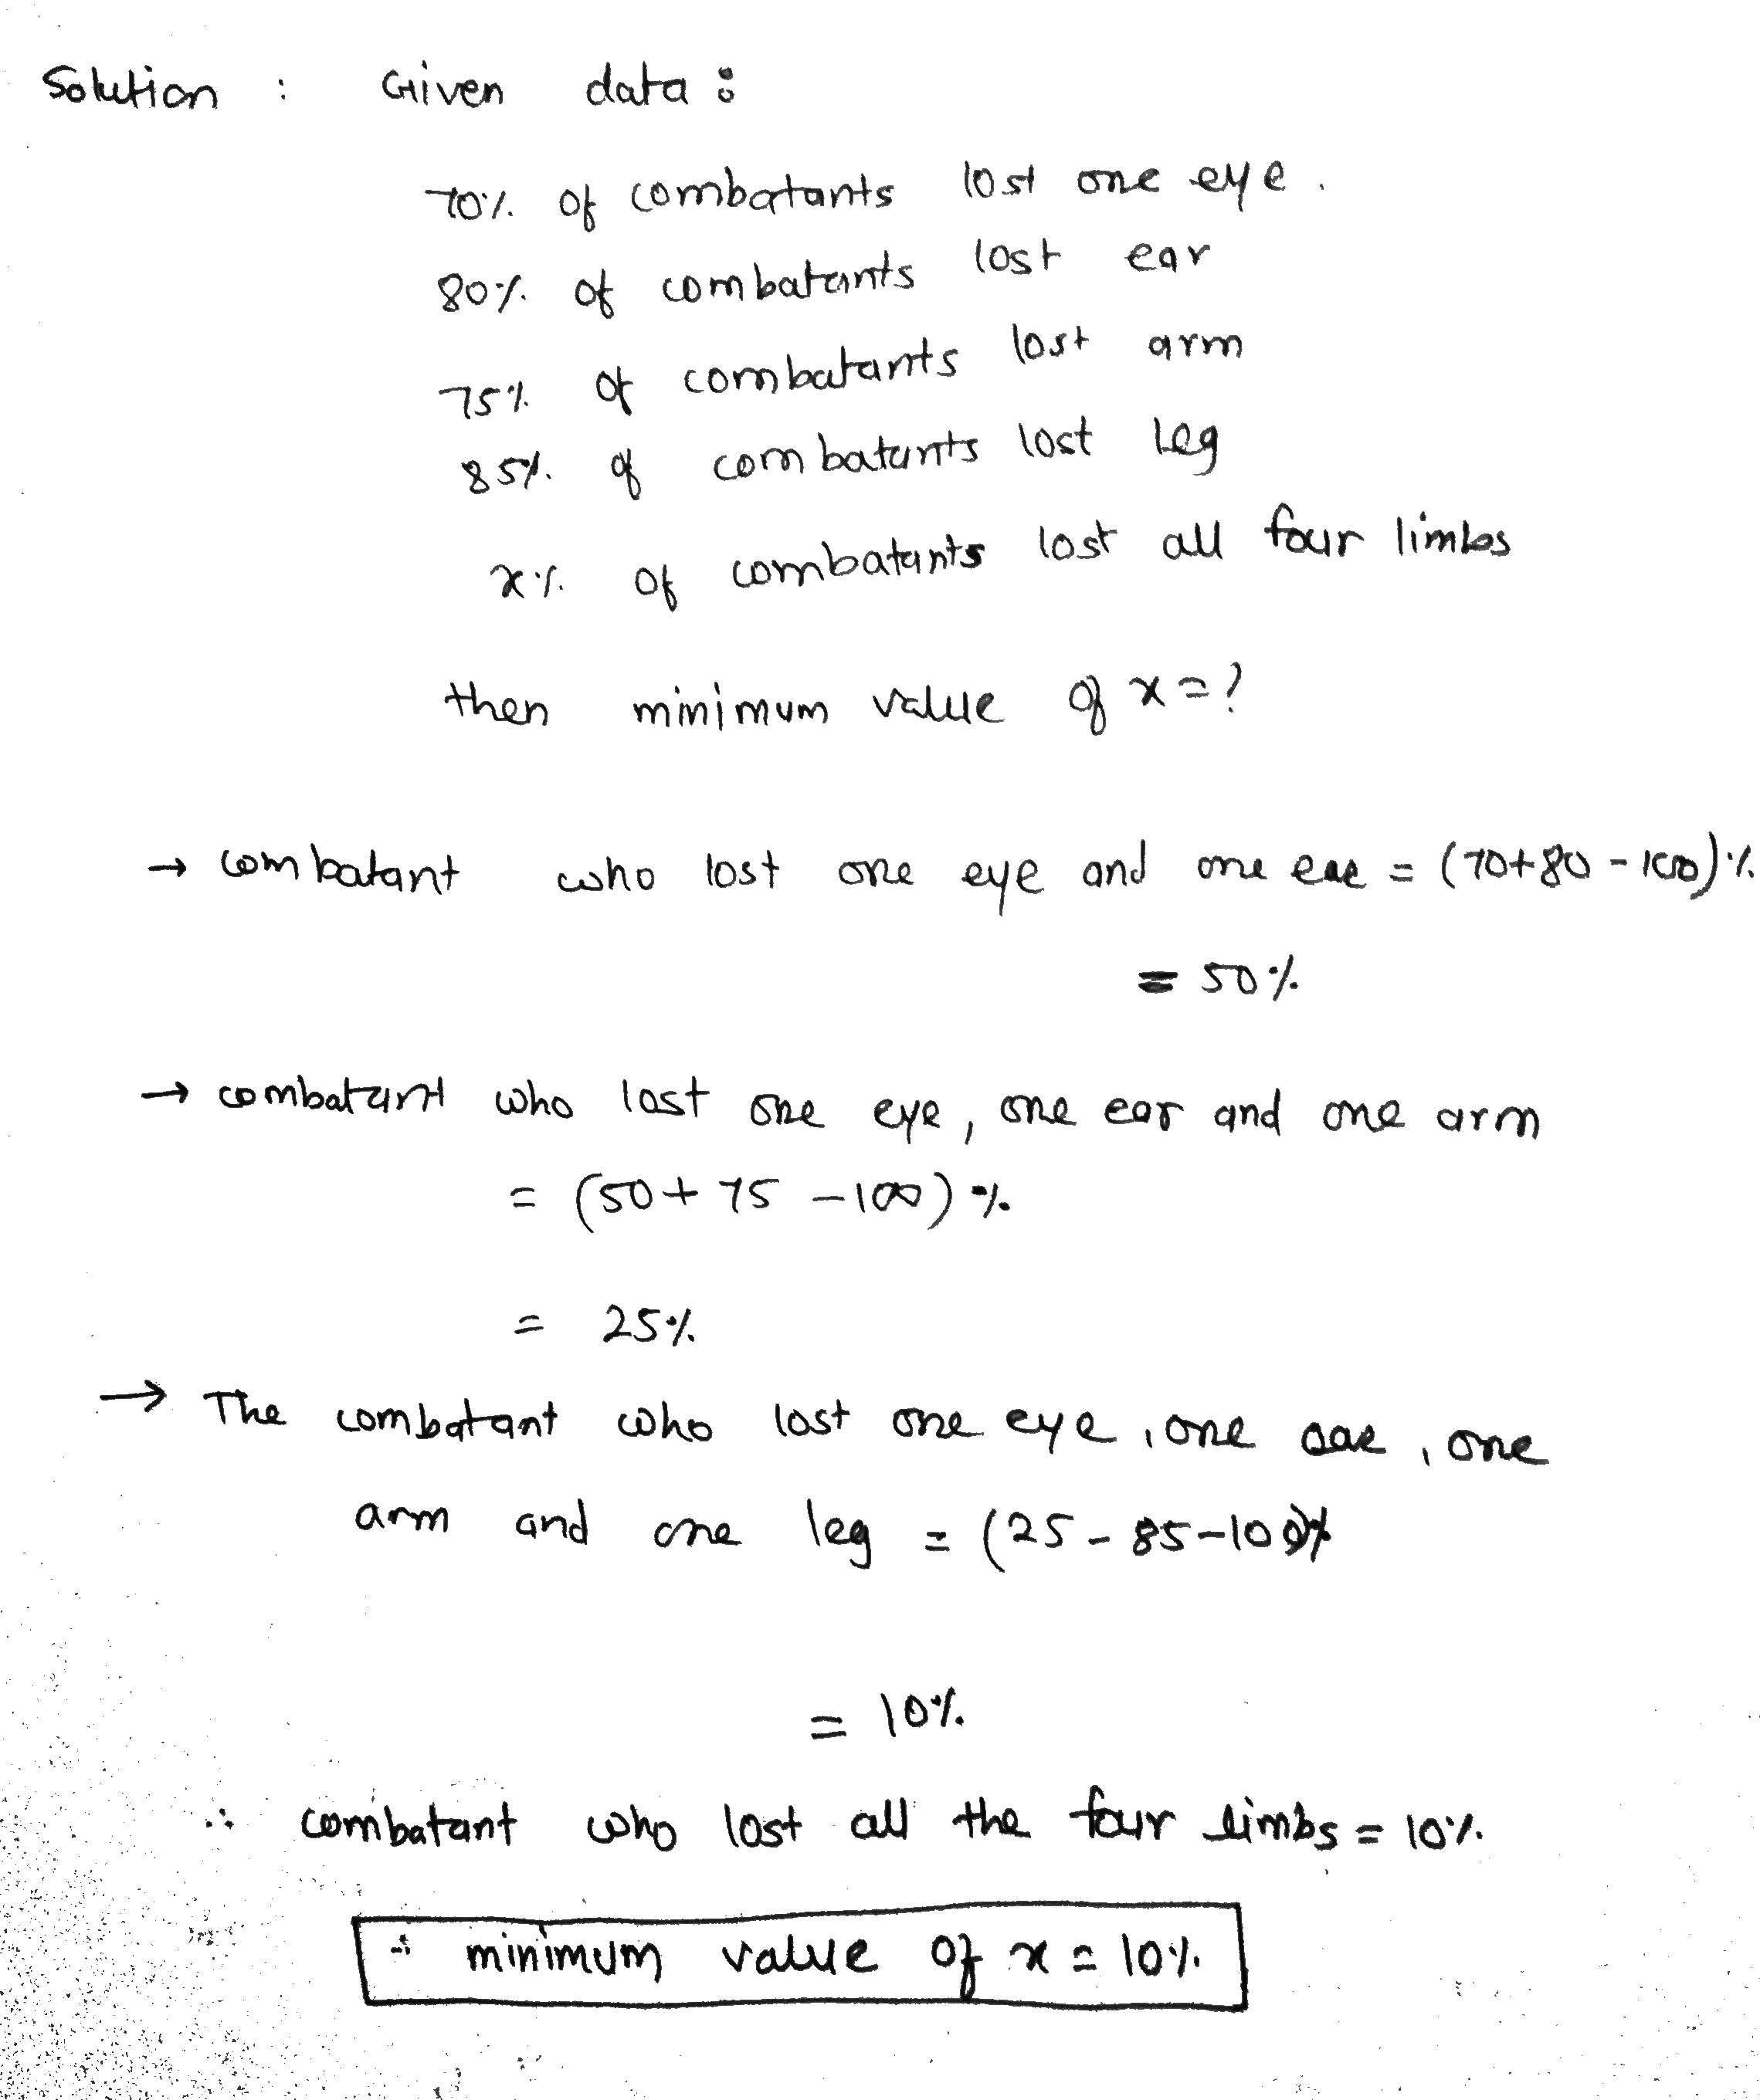 Solution : Given data :
70% of combatants lost one eye.
80% of combatants lost ear
75% of combatants lost arm
85% of combatants lost leg
x% of combatants lost all four limbs
then minimum value of x = ?
→ combatant who lost one eye and one ear = (70+80-100)%
= 50%
→ combatant who lost one eye, one ear and one arm
= (50+75-100)%
= 25%
→ The combatant who lost one eye, one ear, one
arm and one leg = (25-85-100)%
= 10%
∴ combatant who lost all the four limbs = 10%
∴ minimum value of x = 10%